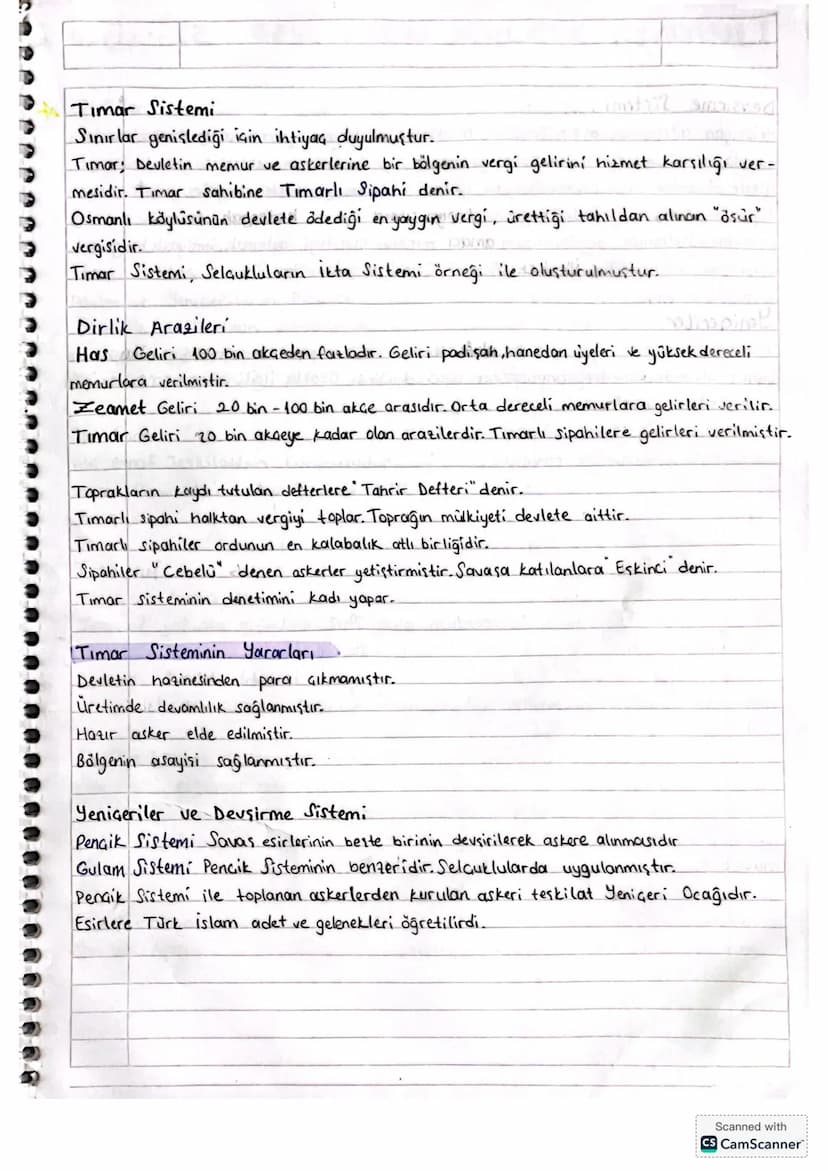 Tımar Sistemi
Sınırlar genişlediği için ihtiyaç duyulmuştur.
Tımar; Devletin memur ve askerlerine bir bölgenin vergi gelirini hizmet karşılığı ver-
mesidir. Tımar sahibine Tımarlı Sipahi denir.
Osmanlı köylüsünün devlete ödediği en yaygın vergi, ürettiği tahıldan alınan "öşür"
vergisidir.
Tımar Sistemi, Selçukluların İkta Sistemi örneği ile oluşturulmuştur.
Dirlik Arazileri
Has Geliri 100 bin akçeden fazladır. Geliri padişah, hanedan üyeleri ve yüksek dereceli
memurlara verilmiştir.
Zeamet Geliri 20 bin - 100 bin akçe arasıdır. Orta dereceli memurlara gelirleri verilir.
Tımar Geliri 20 bin akçeye kadar olan arazilerdir. Tımarlı sipahilere gelirleri verilmiştir.
Toprakların kaydı tutulan defterlere "Tahrir Defteri" denir.
Tımarlı sipahi halktan vergiyi toplar. Toprağın mülkiyeti devlete aittir.
Tımarlı sipahiler ordunun en kalabalık atlı birliğidir.
Sipahiler "Cebelü" denen askerler yetiştirmiştir. Savaşa katılanlara "Eşkinci" denir.
Tımar sisteminin denetimini kadı yapar.
Tımar Sisteminin Yararları
Devletin hazinesinden para çıkmamıştır.
Üretimde devamlılık sağlanmıştır.
Hazır asker elde edilmiştir.
Bölgenin asayişi sağlanmıştır.
Yeniçeriler ve Devşirme Sistemi
Pençik Sistemi Savaş esirlerinin beşte birinin devşirilerek askere alınmasıdır
Gulam Sistemi Pencik Sisteminin benzeridir. Selçuklularda uygulanmıştır.
Pençik Sistemi ile toplanan askerlerden kurulan askeri teşkilat Yeniçeri Ocağıdır.
Esirlere Türk islam adet ve gelenekleri öğretilirdi.
Scanned with
CS CamScanner